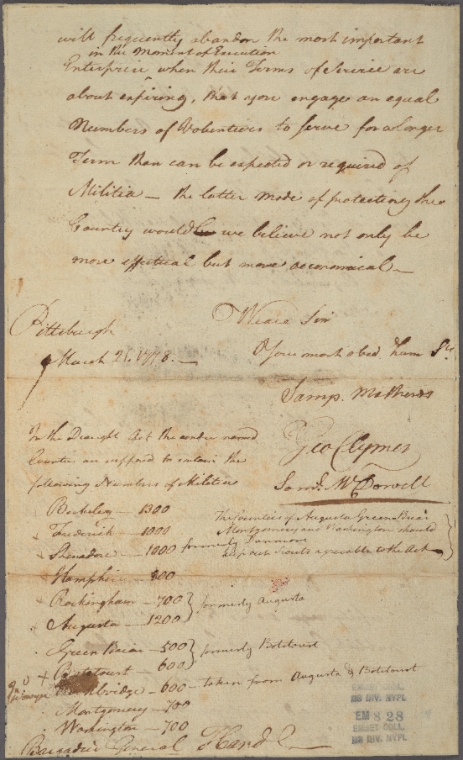 will frequently abandon the most important
in the Moment of Execution
Enterprise when their Terms of Service are
about expiring, that you engage an equal
Numbers of Volunteers to serve for a longer
Term than can be expected or required of
Militia — the latter mode of protecting the
Country would we believe not only be
more effectual but more oeconomical —
Pittsburgh
March 21. 1778. —
We are Sir
Your most obed Hum Sts
Samp. Mathews
Geo Clymer
Saml. McDowell
In the Draught Act the under named
Counties are supposed to contain the
following Numbers of Militia
Berkeley — 1300
Frederick — 1000
Shanadore — 1000 formerly Dunmore
The Counties of Augusta Green Briar
Montgomery and Washington should
keep out Scouts agreeable to the Act
Hampshire — 800
Rockingham — 700 } formerly Augusta
Augusta — 1200
Green Briar — 500 } formerly Botetourt
Botetourt — 600
Rockbridge — 600 — taken from Augusta & Botetourt
Montgomery — 700
Washington — 700
Brigadier General Hand
EMMET COLL.
MS DIV. NYPL
EM 8 28
EMMET COLL.
MS DIV. NYPL